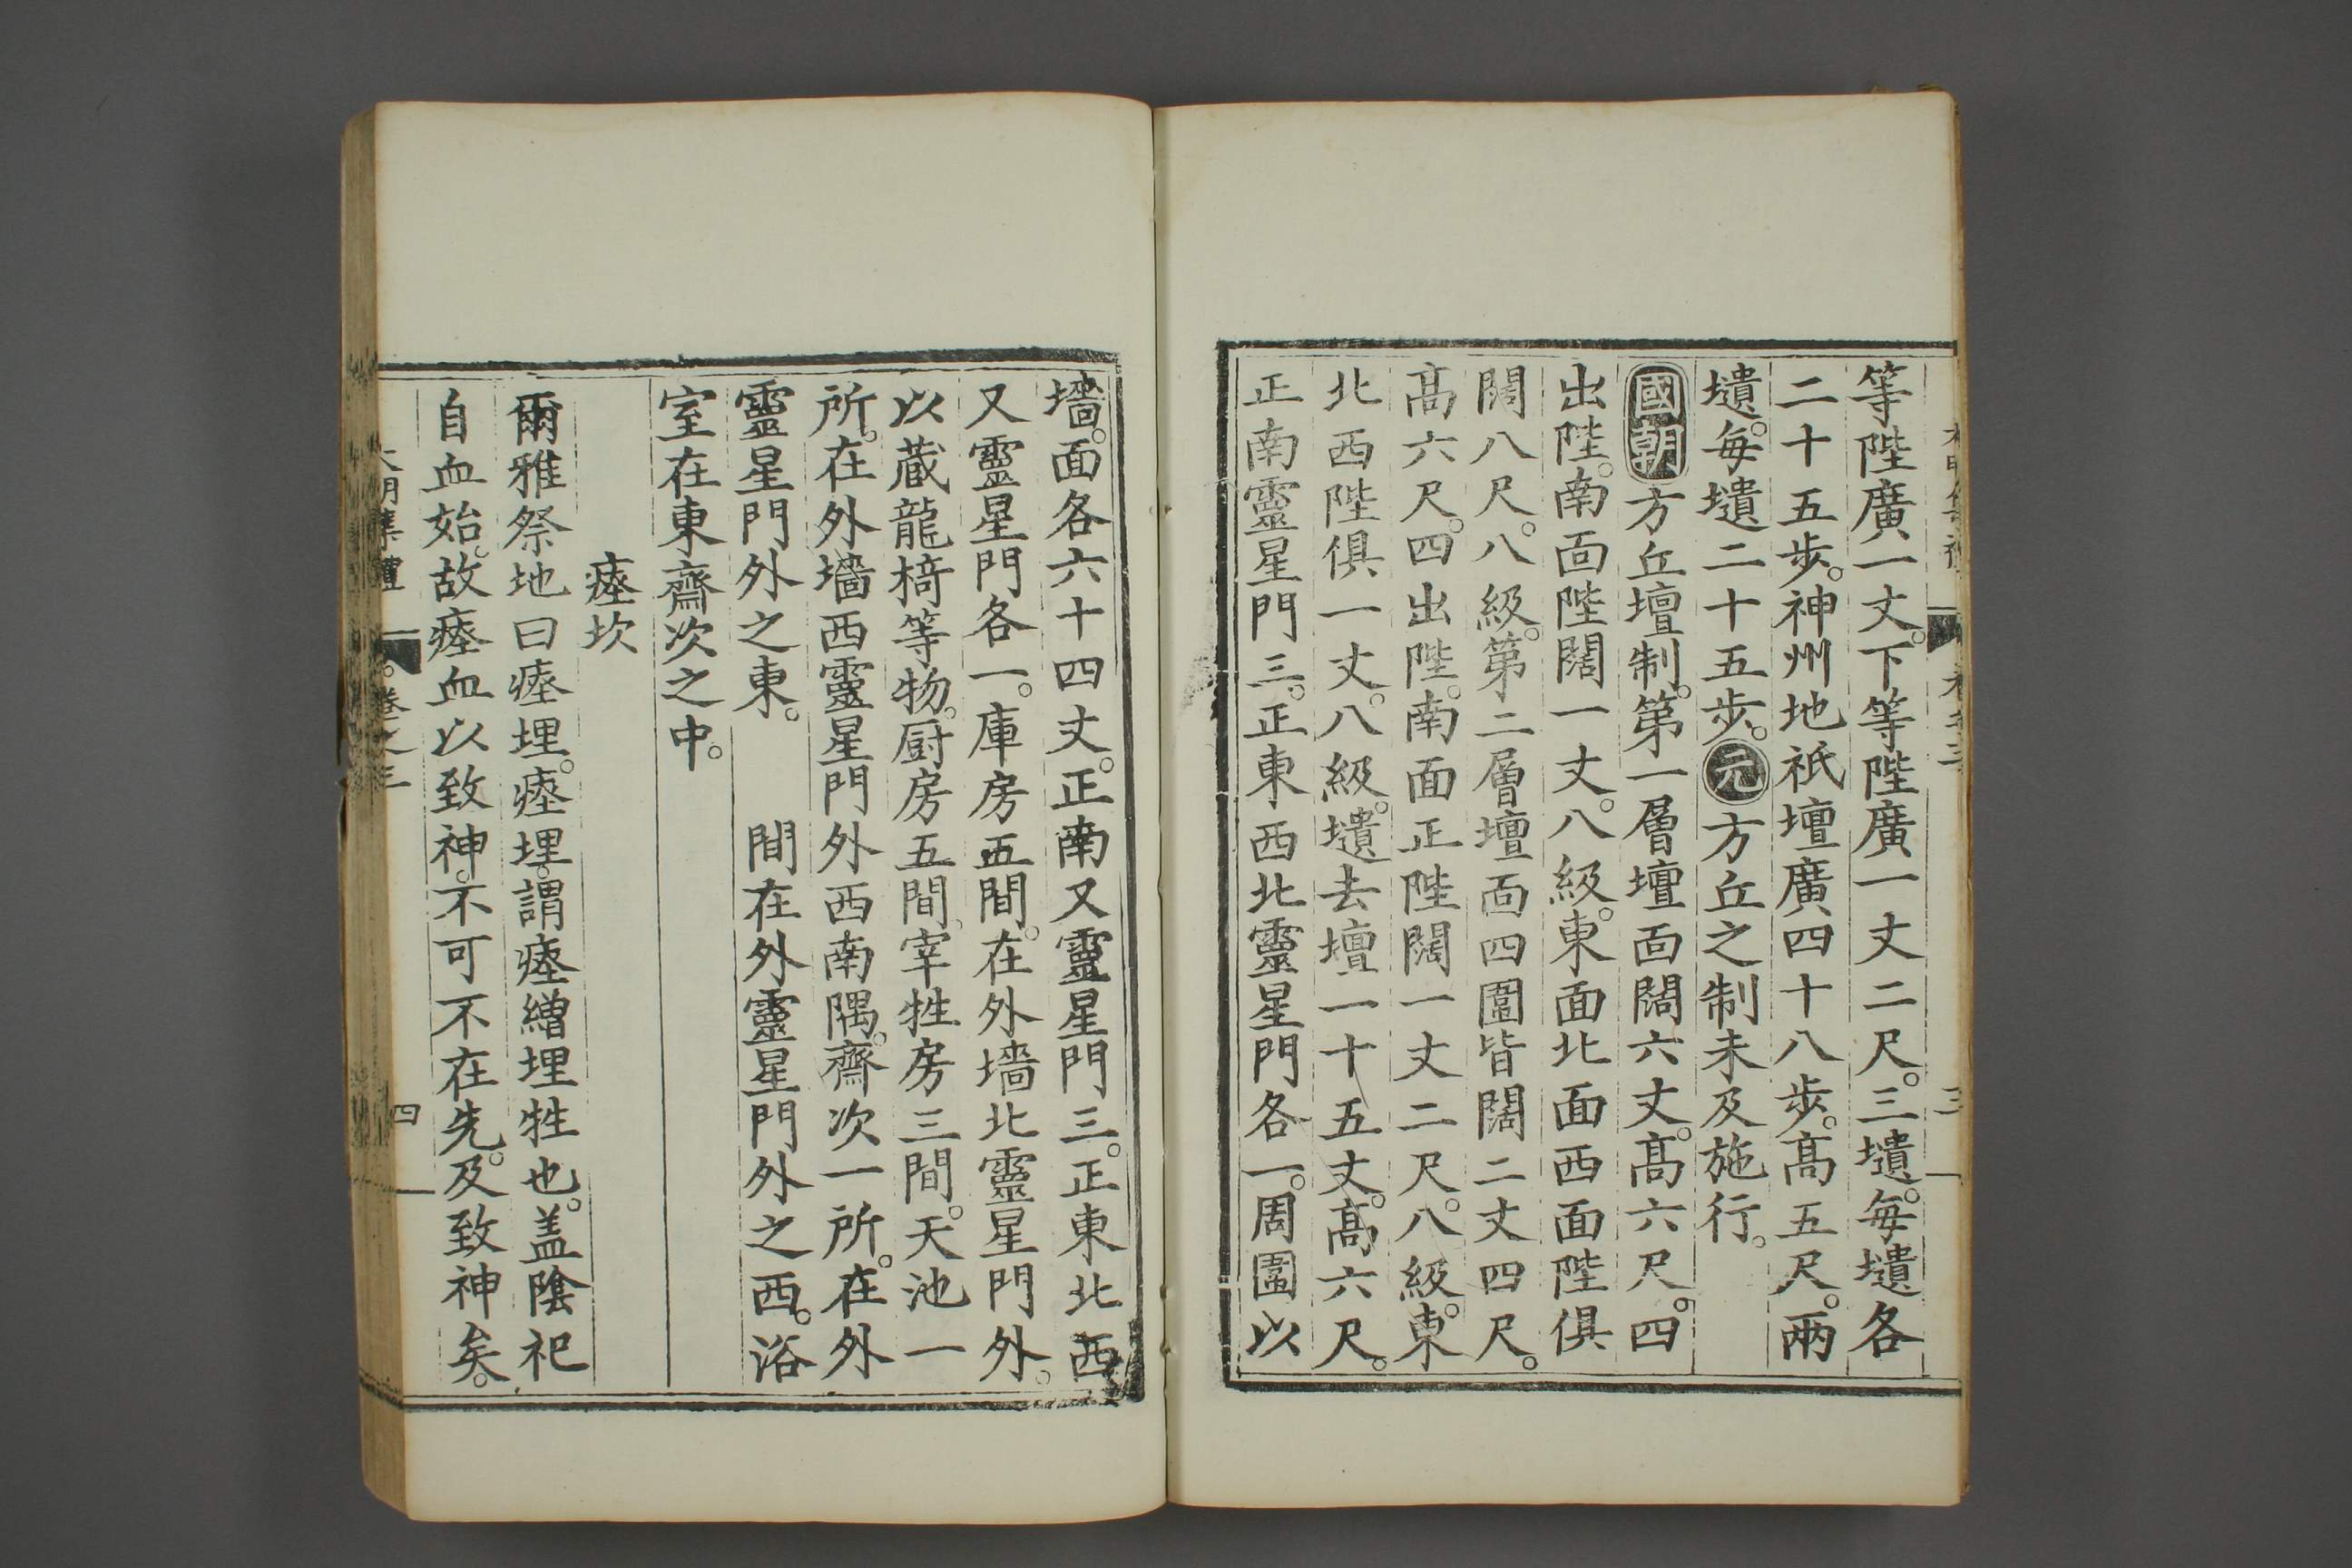 等陛廣一丈。下等陛廣一丈二尺。三壝。每壝各
二十五步。神州地祇壇廣四十八步。髙五尺。兩
壝。每壝二十五步。元方丘之制未及施行。
國朝方丘壇制。第一層壇面闊六丈。髙六尺。四
出陛。南面陛闊一丈。八級。東面北面西面陛俱
闊八尺。八級。第二層壇面四圍皆闊二丈四尺。
髙六尺。四出陛。南面正陛闊一丈二尺。八級。東
北西陛俱一丈。八級。壝去壇一十五丈。髙六尺。
正南靈星門三。正東西北靈星門各一。周圍以
墻。面各六十四丈。正南又靈星門三。正東北西
又靈星門各一。庫房五間。在外墻北靈星門外。
以蔵龍椅等物。厨房五間。宰牲房三間。天池一
所。在外墻西靈星門外西南隅。齋次一所。在外
靈星門外之東。 間在外靈星門外之西。浴
室在東齋次之中。
瘞坎
爾雅祭地曰瘞埋。瘞埋。謂瘞繒埋牲也。盖陰祀
自血始。故瘞血以致神。不可不在先。及致神矣。
大明集禮 卷之三 四